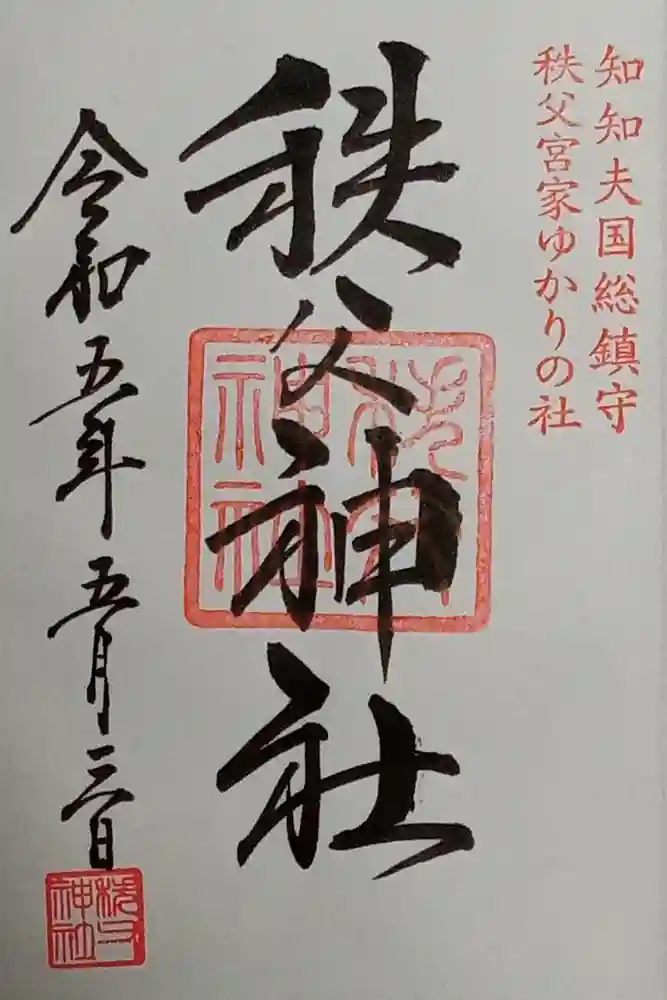 知知夫国総鎮守
秩父宮家ゆかりの社
秩父神社
秩父
神社
令和五年五月三日
秩父
神社